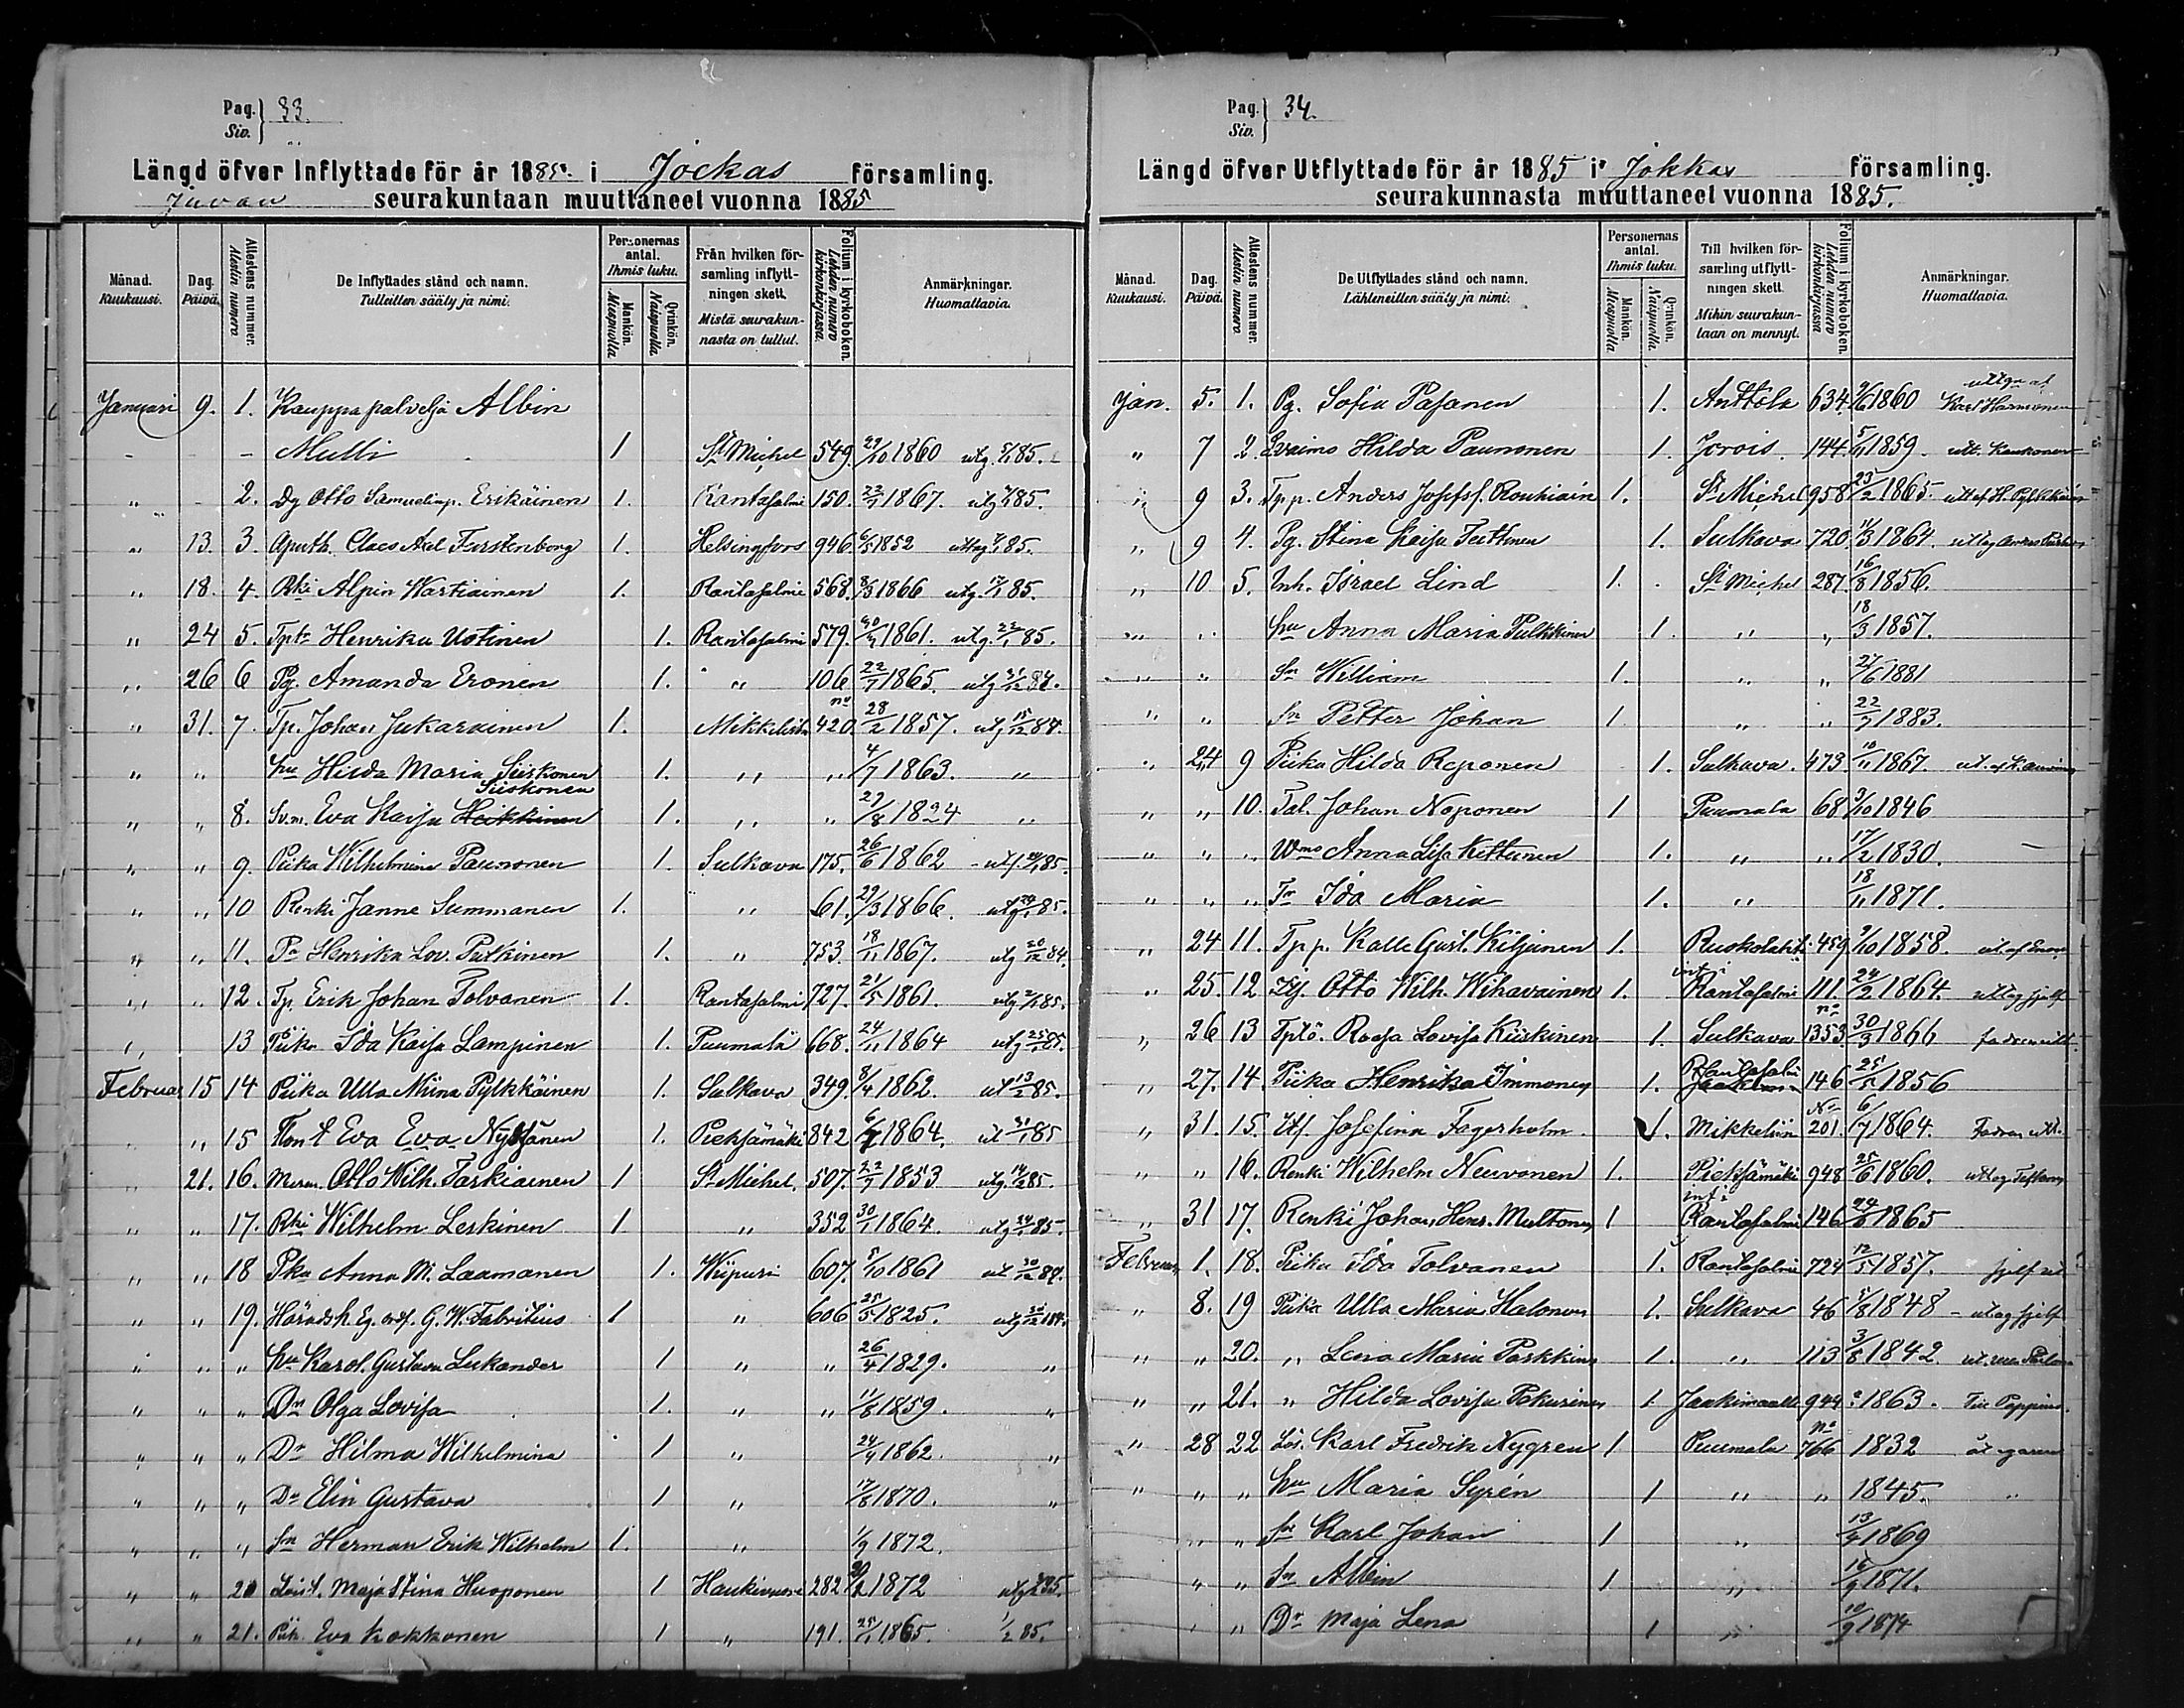 Pag. 33.
Siv.
Längd öfver Inflyttade för år 1885 i Jockas församling.
Juvan seurakuntaan muuttaneet vuonna 1885
Månad. Kuukausi. Dag. Päivä. Attestens nummer. Alestin numero. De Inflyttades stånd och namn. Tulleitten sääty ja nimi. Personernas antal. Ihmis luku. Mankön. Miespuolia Qvinkön. Naispuolia Från hvilken församling inflyttningen skett. Mistä seurakunnasta on tullut. Folium i kyrkoboken. Lehden numero kirkonkirjassa. Anmärkningar. Huomattavia.
Januari 9. 1. Kauppapalvelja Albin
- - - Mulli 1 St Michel 549. 29/10 1860 utg. 5/1 85.
„ - 2. Dg Otto Samuelinp. Erikäinen 1. Rantasalmi 150. 22/7 1867. utg 85.
„ 13. 3. Apoth. Claes Axel Furstenborg 1. Helsingfors 946. 6/5 1852 uttag 85.
„ 18. 4. Rki Alpin Wartiainen 1. Rantasalmi 568. 8/3 1866 utg. 85.
„ 24 5. Tptr Henrika Ustinen 1. Rantasalmi 579. 1861. utg. 23/1 85.
„ 26 6 Pg. Amanda Eronen 1. „ 106 22/7 1865. utg 31/12 84.
„ 31. 7. Tp. Johan Jukarainen 1. Mikkelistä no 420. 28/2 1857. utg 15/12 84.
„ „ hu Hilda Maria Siiskonen 1. „ „ 4/7 1863. „
Siiskonen
„ „ 8. Sv.m. Eva Kaisa Heikkinen 1. „ „ 27/8 1824 „
„ „ 9. Piika Wilhelmina Paunonen 1. Sulkava 175. 26/6 1862 - utg. 85.
„ „ 10 Renki Janne Summanen 1. „ 61. 29/3 1866. utg 85.
„ „ 11. Pa Henrika Lov. Pulkinen 1. „ 753. 18/11 1867. utg 20/12 84.
„ „ 12. Tp. Erik Johan Tolvanen 1. Rantasalmi 727. 21/5 1861. utg 85.
„ 13 Piika Ida Kaisa Lampinen 1. Puumala 668. 24/11 1864 utg 25/1 85.
Februar 15 14 Piika Ulla Miina Pylkkäinen 1. Sulkava 349. 8/4 1862. ut 13/2 85.
„ „ 15 Eva Eva Nykänen 1. Pieksämäki 842 1864. ut 31/1 85
21. 16. Otto Wilh. Tarkiainen 1 St Michel. 507. 22/7 1853 utg. 14/2 85.
„ „ 17. Rki Wilhelm Leskinen 1. „ 352 30/1 1864. utg 24/1 85.
„ „ 18 Pka Anna M. Laamanen 1. Wipuri 607. 5/10 1861 ut 30/12 84.
„ „ 19. Häradsh. G. W. Fabritius 1 „ 606 25/5 1825. utg 30/12 184.
„ „ „ hu Karol. Gustava Lukander 1 „ „ 26/4 1829. „
„ „ „ Dr Olga Lovisa 1. „ „ 11/8 1859. „
„ „ „ Dr Hilma Wilhelmina 1 „ 24/9 1862. „
„ „ „ Dr Elin Gustava 1 „ 17/8 1870. „
„ „ „ Sn Herman Erik Wilhelm 1. „ 1/9 1872.
„ „ 20 Maja Stina Huoponen 1 Haukivuori 282 20/2 1872 utg 85.
„ „ 21. Piik. Eva Kokkonen 1 „ 191. 25/1 1865. 1/2 85.
Pag. 34.
Siv.
Längd öfver Utflyttade för år 1885 i Jokkas församling.
seurakunnasta muuttaneet vuonna 1885.
Månad. Kuukausi. Dag. Päivä. Attestens nummer. Alestin numero. De Utflyttades stånd och namn. Lähteneitten sääty ja nimi. Personernas antal. Ihmis luku. Mankön. Miespuolia Qvinkön. Naispuolia. Till hvilken församling utflyttningen skett. Mihin seurakuntaan on mennyt. Folium i kyrkoboken. Lehden numero kirkonkirjassa. Anmärkningar. Huomattavia.
Jan. 5. 1. Pg. Sofia Pasanen 1. Anttola 634 9/6 1860 Karl Harmonen
„ 7 2. Hilda Paunonen 1. Jorois. 144. 5/11 1859. utt. Kaukonen
„ 9 3. Tpp. Anders Josefsf. Rouhiain 1. St Michel 958 23/2 1865. utt af H. Pylkkäin
„ 9 4. Pg. Stina Kaisa Teittinen 1. Sulkava 720. 11/3 1864. uttag Anders
„ 10 5. Inh. Israel Lind 1. St Michel 287. 16/8 1856.
„ „ hu Anna Maria Pulkkinen 1. „ „ 18/3 1857.
„ „ Sn William 1. „ „ 27/6 1881
„ „ Sn Petter Johan 1 „ „ 22/7 1883.
„ 24 9 Piika Hilda Reponen 1. Sulkava. 473. 10/11 1867.
„ „ 10. Tal. Johan Noponen 1 Puumala 68 3/10 1846
„ „ „ Wmo Anna Lisa Kettunen 1. „ „ 17/2 1830. -
„ „ „ Tr Ida Maria 1. „ 18/11 1871.
„ 24 11. Tpp. Kalle Gust. Kiljunen 1. Ruskolaht. 459 9/10 1858.
„ 25. 12 Itj. Otto Wilh. Wihavainen 1. Rantasalmi 111. 24/2 1864. uttag sjelf
„ 26 13 Tptö. Roosa Lovisa Kiiskinen 1. Sulkava no 1353 30/3 1866 fadren utt.
„ 27. 14 Piika Henrika Immonen 1. Rantasalmi 146 25/5 1856
„ 31. 15. Itj. Josefina Fagerholm 1. Mikkeliin No 201. 6/7 1864. Fadren utt.
„ „ 16. Renki Wilhelm Neuvonen 1. Pieksämäki 948 25/6 1860.
„ 31 17. Renki Johan Henr. Multonen 1 Rantasalmi 146 24/8 1865
Februar 1. 18. Piika Ida Tolvanen 1. Rantasalmi 724 12/5 1857. sjelf ut
„ 8. 19 Piika Ulla Maria Halonen 1. Sulkava 46 1848 - uttag sjelf
„ „ 20. „ Lena Maria Parkkinen 1. „ 113 3/8 1842.
„ „ 21. „ Hilda Lovisa Pokurinen 1 Jaakimaalle 944 1863.
„ 28 22 Lös. Karl Fredrik Nygren 1 Puumala no 766 1832
„ „ „ hu Maria Syrén 1 „ „ 1845. „
„ „ Sn Karl Johan 1 „ 13/4 1869
„ „ Sn Albin 1 „ 16/9 1871.
„ „ Dr Maja Lena 1 „ 10/9 1874